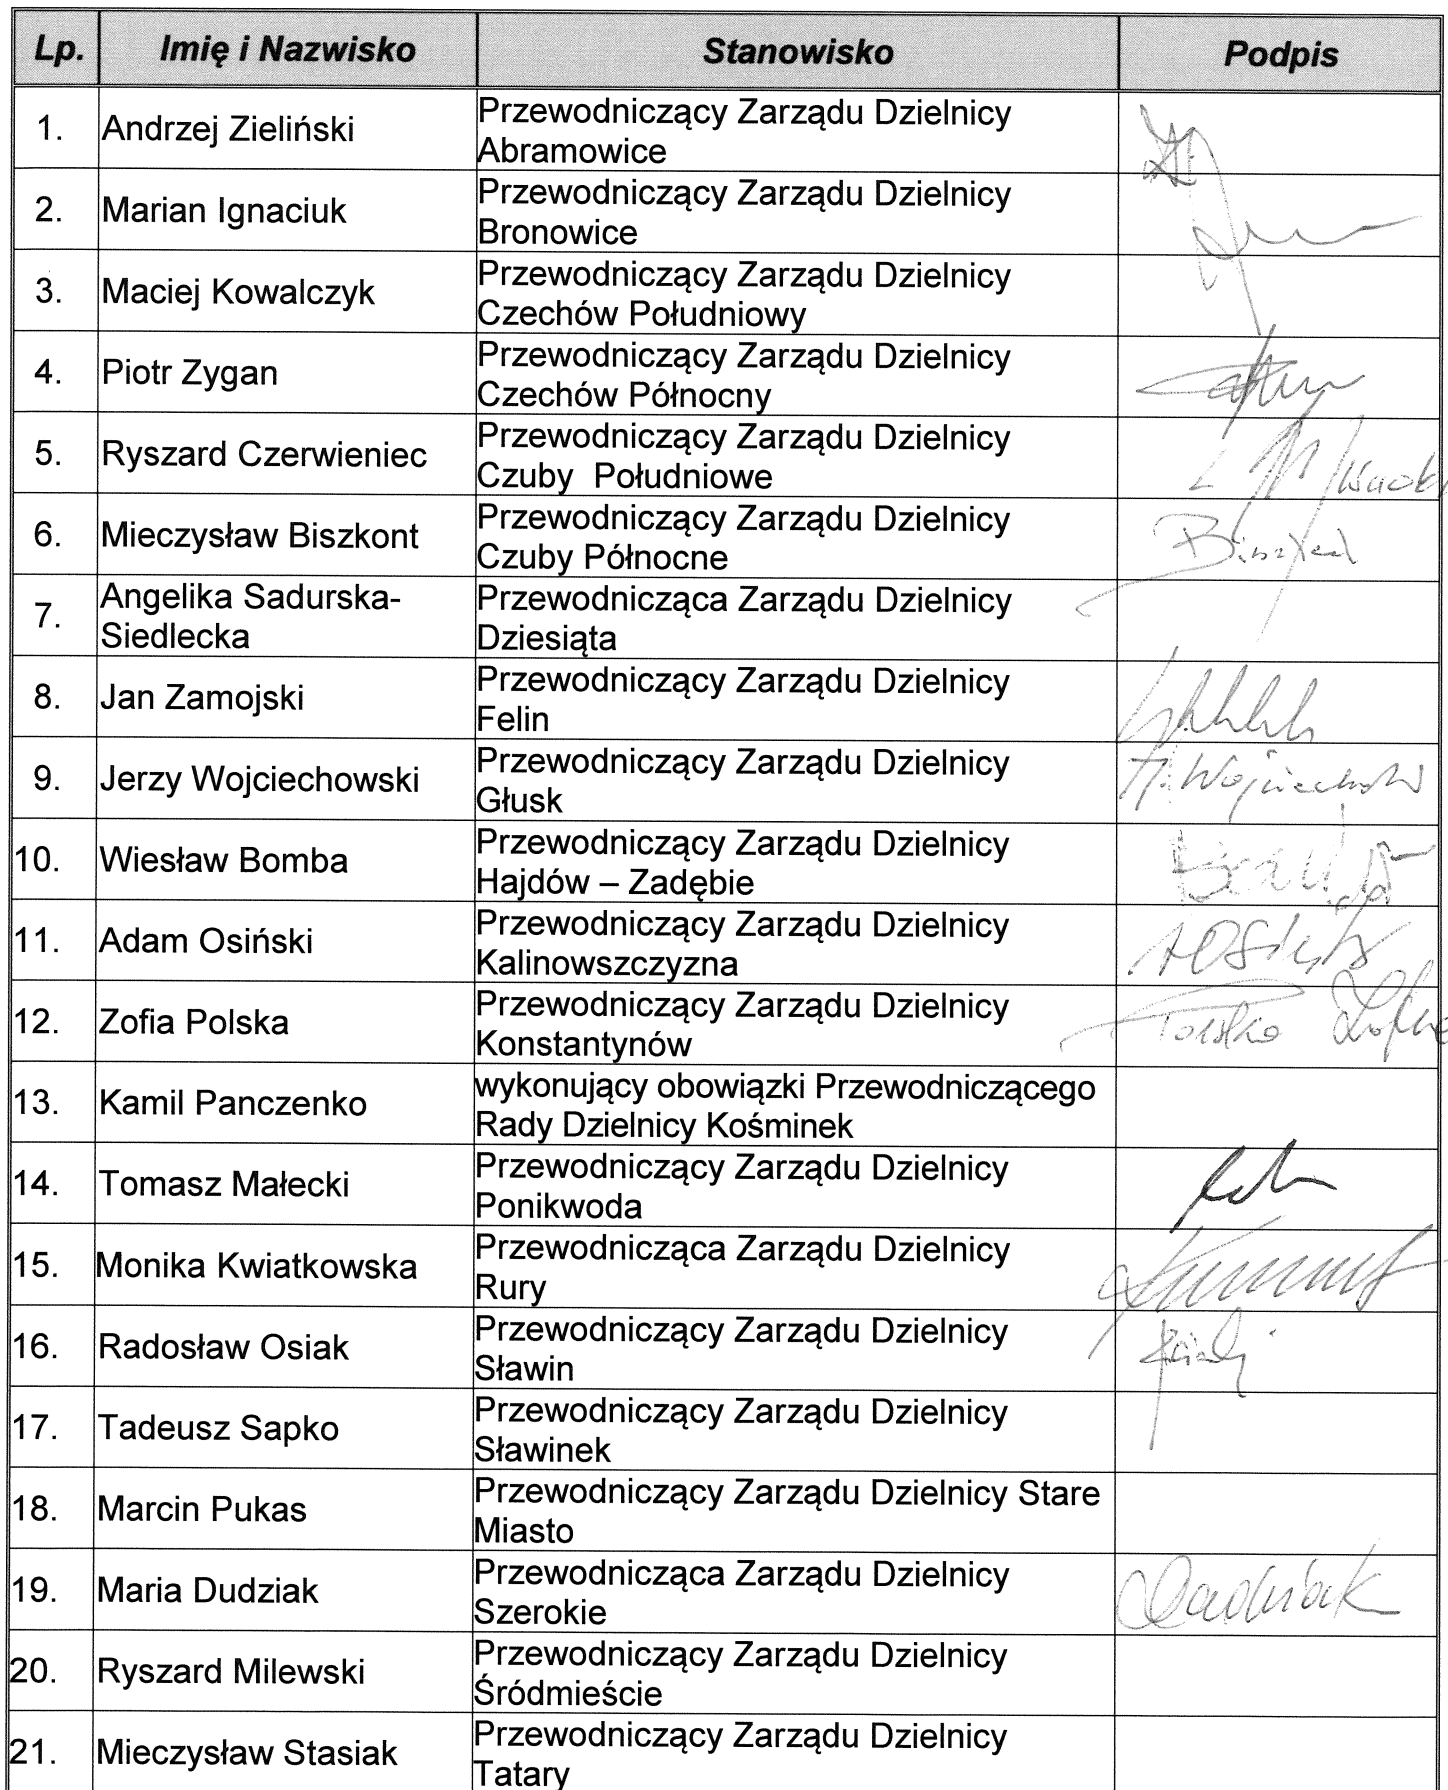 Lp. Imię i Nazwisko Stanowisko Podpis
1. Andrzej Zieliński Przewodniczący Zarządu Dzielnicy
Abramowice
2. Marian Ignaciuk Przewodniczący Zarządu Dzielnicy
Bronowice
3. Maciej Kowalczyk Przewodniczący Zarządu Dzielnicy
Czechów Południowy
4. Piotr Zygan Przewodniczący Zarządu Dzielnicy
Czechów Północny
5. Ryszard Czerwieniec Przewodniczący Zarządu Dzielnicy
Czuby Południowe
6. Mieczysław Biszkont Przewodniczący Zarządu Dzielnicy
Czuby Północne
7. Angelika Sadurska-
Siedlecka Przewodnicząca Zarządu Dzielnicy
Dziesiąta
8. Jan Zamojski Przewodniczący Zarządu Dzielnicy
Felin
9. Jerzy Wojciechowski Przewodniczący Zarządu Dzielnicy
Głusk
10. Wiesław Bomba Przewodniczący Zarządu Dzielnicy
Hajdów – Zadębie
11. Adam Osiński Przewodniczący Zarządu Dzielnicy
Kalinowszczyzna
12. Zofia Polska Przewodniczący Zarządu Dzielnicy
Konstantynów
13. Kamil Panczenko wykonujący obowiązki Przewodniczącego
Rady Dzielnicy Kośminek
14. Tomasz Małecki Przewodniczący Zarządu Dzielnicy
Ponikwoda
15. Monika Kwiatkowska Przewodnicząca Zarządu Dzielnicy
Rury
16. Radosław Osiak Przewodniczący Zarządu Dzielnicy
Sławin
17. Tadeusz Sapko Przewodniczący Zarządu Dzielnicy
Sławinek
18. Marcin Pukas Przewodniczący Zarządu Dzielnicy Stare
Miasto
19. Maria Dudziak Przewodnicząca Zarządu Dzielnicy
Szerokie
20. Ryszard Milewski Przewodniczący Zarządu Dzielnicy
Śródmieście
21. Mieczysław Stasiak Przewodniczący Zarządu Dzielnicy
Tatary